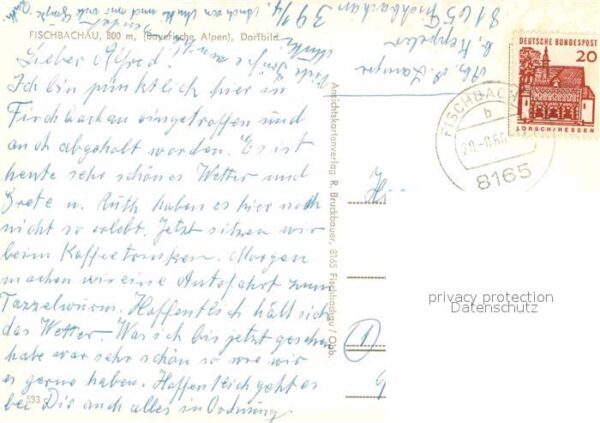 FISCHBACHAU, 800 m, (Bayerische Alpen), Dorfbild
Lieber Alfred!
Ich bin pünktlich hier in
Fischbachau eingetroffen und
auch abgeholt worden. Es ist
heute sehr schönes Wetter und
Grete u. Ruth haben es hier noch
nicht so erlebt. Jetzt sitzen wir
beim Kaffeetrinken. Morgen
machen wir eine Autofahrt zum
Tazzelwurm. Hoffentlich hält sich
das Wetter. Was ich bis jetzt gesehen
habe war sehr schön so wie wir
es gerne haben. Hoffentlich geht es
bei Dir auch alles in Ordnung.
593
Ansichtskartenverlag R. Bruckbauer, 8165 Fischbachau / Obb.
8165 Fischbachau
DEUTSCHE BUNDESPOST
20
LORSCH/HESSEN
FISCHBACH
b
8165
privacy protection
Datenschutz